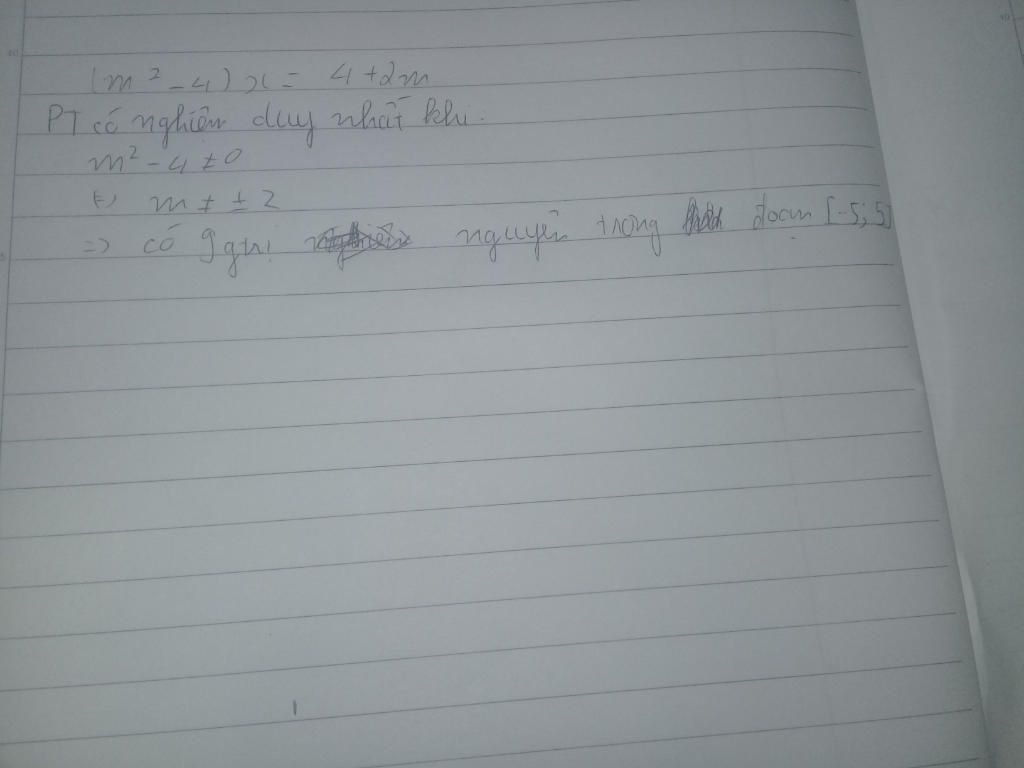 (m² - 4)x = 4 + 2m
PT có nghiệm duy nhất khi:
m² - 4 ≠ 0
(=) m ≠ ± 2
=> có 9 gtrị nguyên trong đoạn [-5; 5]